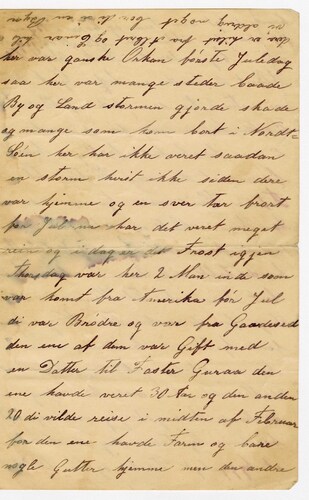 her var ganske Orkan förste Juledag
saa her var mange steder baade
By og Land stormen gjorde skade
og mange som kom bort i Nordt=
Söen her har ikke veret saadan
en storm hvist ikke siden dere
var hjemme og en sver tar
för Jul har det veret meget
rein og i dag er det Frost iggen
Thorsdag var her 2 Man inde som
var komt fra Amerika för Jul
di var Brödre og var fra
den ene af dem var Gift med
en Datter til Faster Guraa den
ene havde veret 30 Aar og den anden
20 di vilde reise i midten af Februar
for den ene havde Farm og bare
nogle Gutter hjemme men den andre